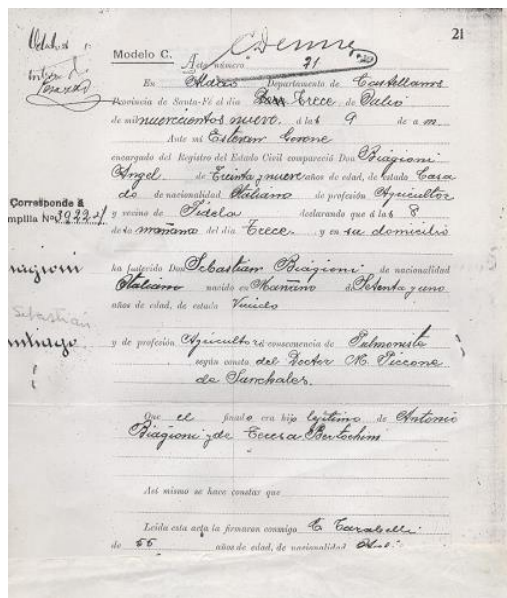 21
Modelo C.
Acta número 21
En Departamento de Castellanos
Provincia de Santa-Fé el día Trece de Julio
de mil nuevecientos nueve á las 9 de a m
Ante mí Estevan
encargado del Registro del Estado Civil compareció Don Biagioni
Angel de Treinta y nueve años de edad, de estado Casa
do de nacionalidad Italiano de profesión Agricultor
Corresponde á
mpilla Nº 3922
y vecino de Fidela declarando que á las 8
de la mañana del día Trece y en su domicilio
iagioni
ha fallecido Don Sebastian Biagioni de nacionalidad
Italiano nacido en de Setenta y uno
años de edad, de estado Viudo
Sebastián
ntiago
y de profesión Agricultor á consecuencia de Pulmonita
según consta del Doctor M. Piccone
de Sunchales.
Que el finado era hijo legitimo de Antonio
Biagioni y de Teresa
Así mismo se hace constar que
Leída esta acta la firmaron conmigo
de 55 años de edad, de nacionalidad